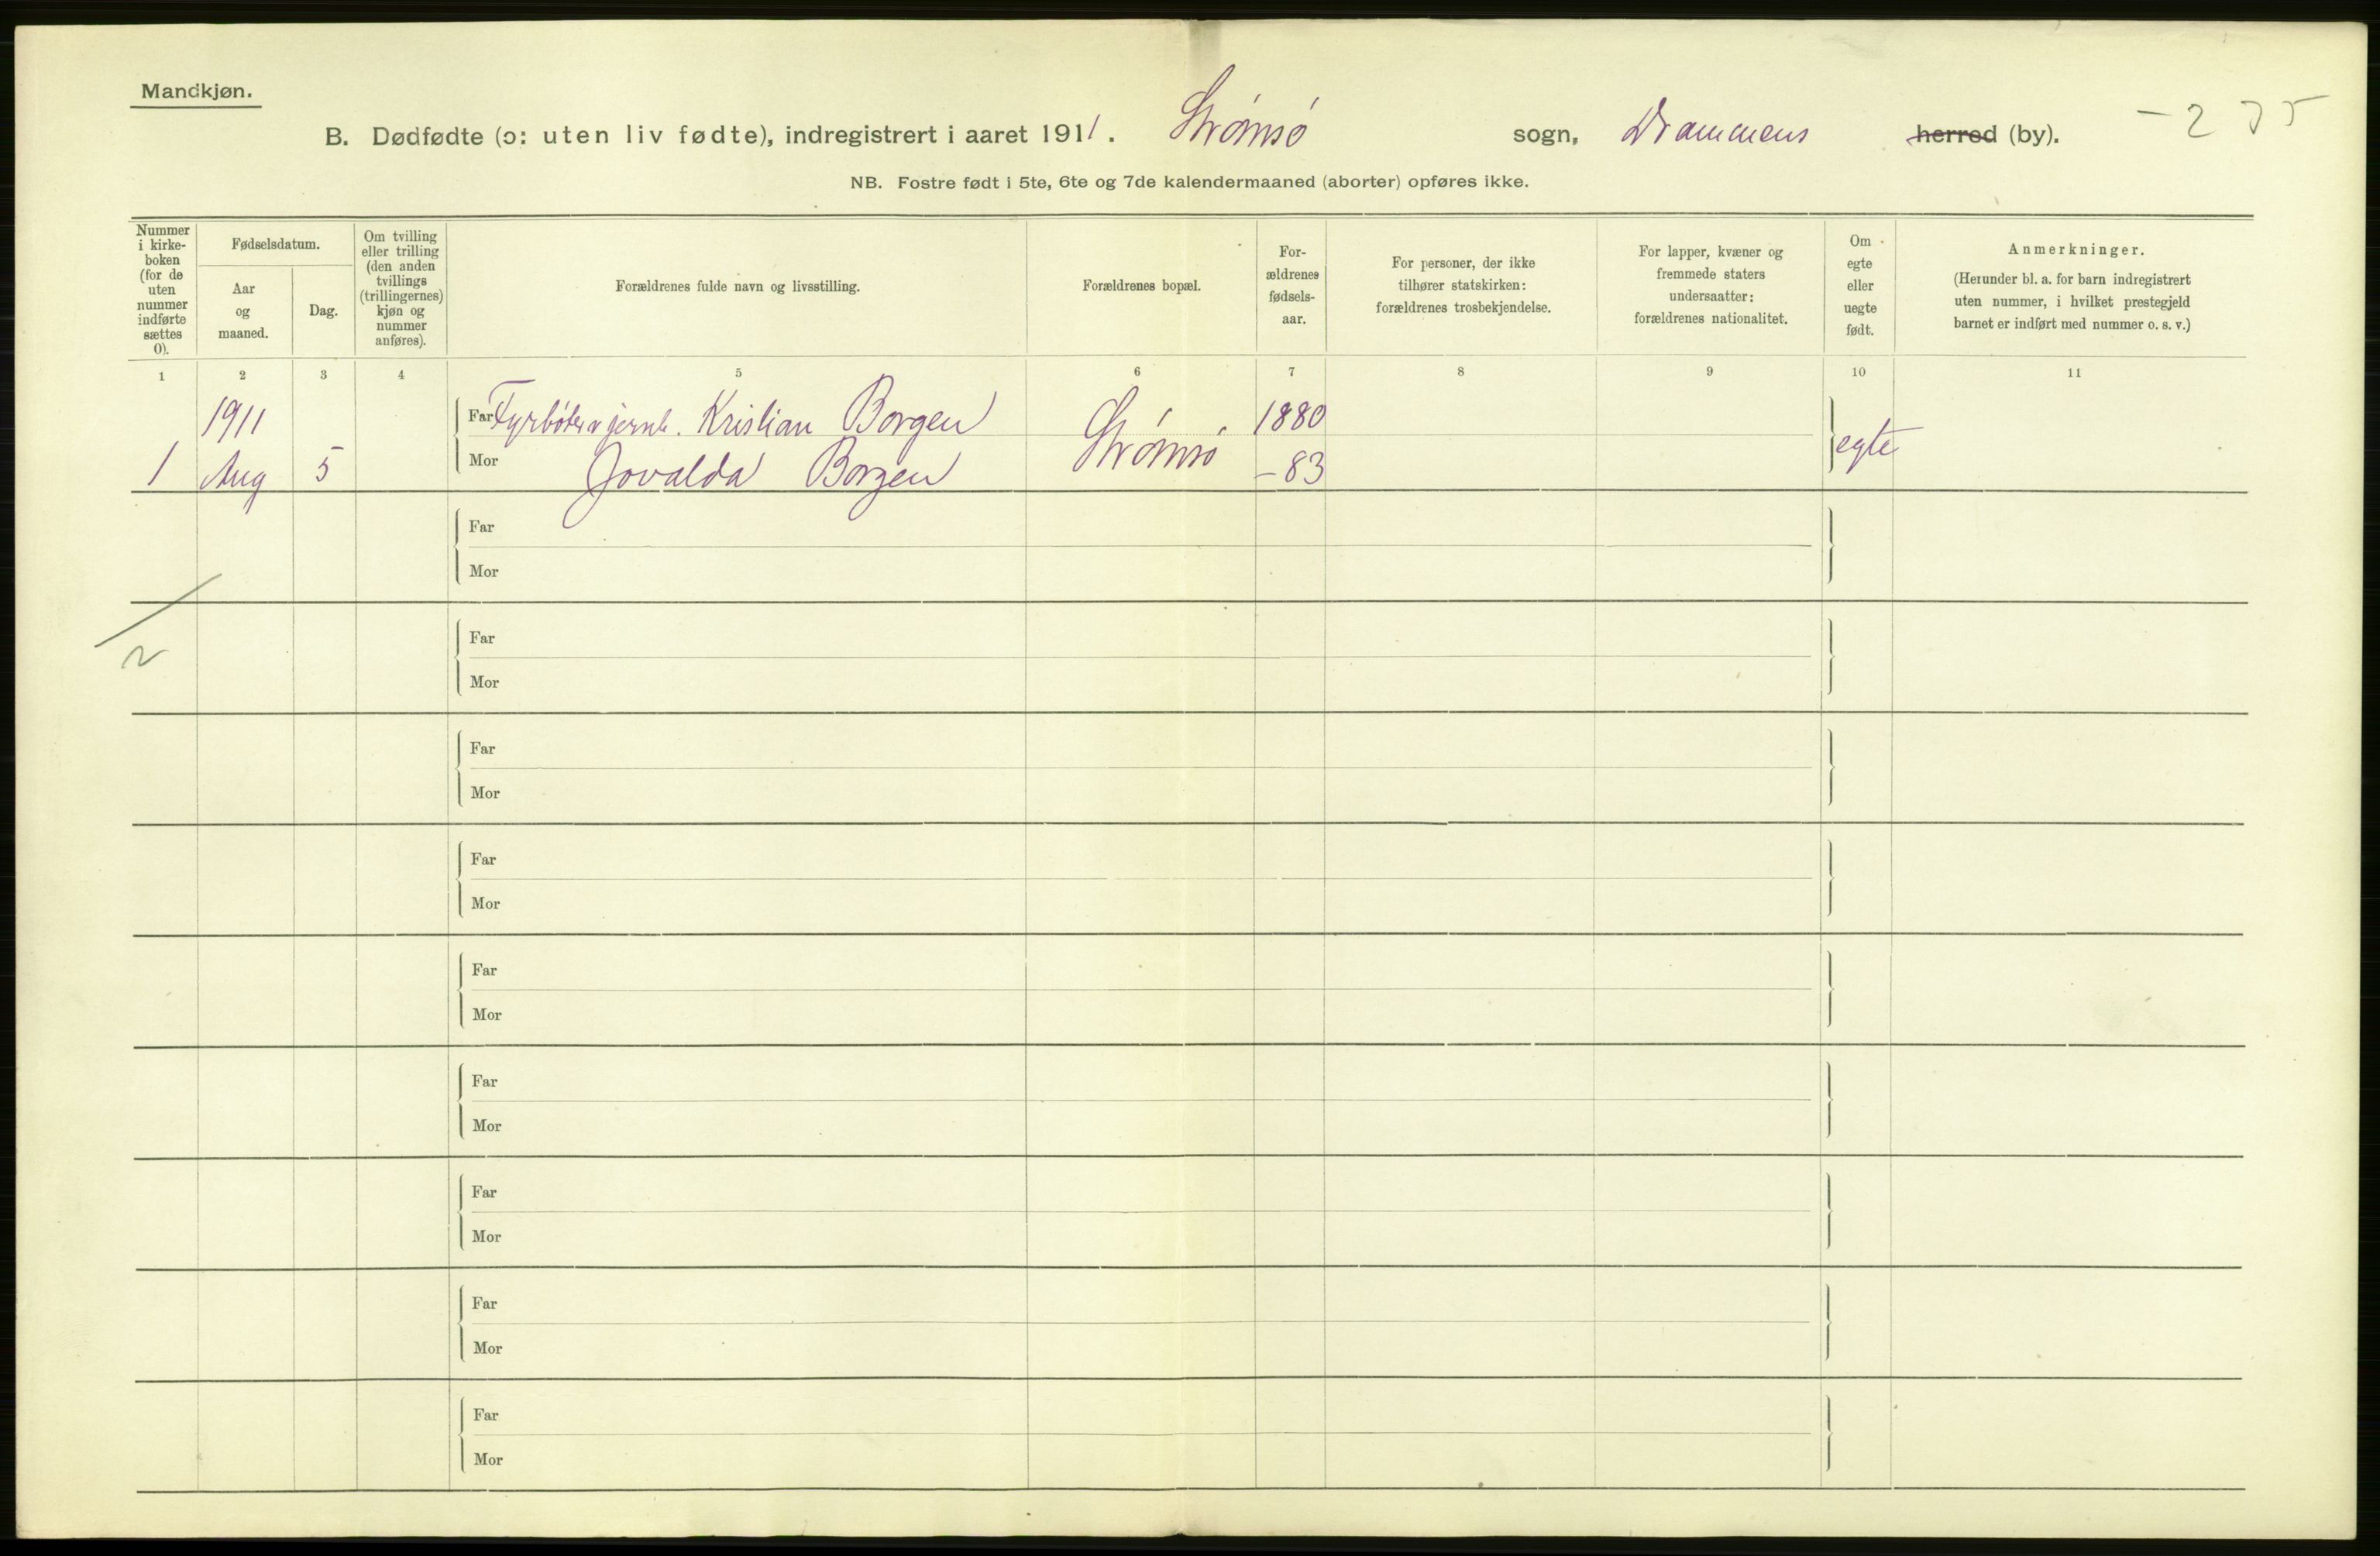 Mandkjøn.
B. Dødfødte (ɔ: uten liv fødte), indregistrert i aaret 1911. Strømsø sogn, Drammens herred (by).
- 2 35
NB. Fostre født i 5te, 6te og 7de kalendermaaned (aborter) opføres ikke.
Nummer
i kirke-
boken
(for de
uten
nummer
indførte
sættes
0).
Fødselsdatum.
Aar
og
maaned.
Dag.
Om tvilling
eller trilling
(den anden
tvillings
(trillingernes)
kjøn og
nummer
anføres).
Forældrenes fulde navn og livsstilling.
Forældrenes bopæl.
For-
ældrenes
fødsels-
aar.
For personer, der ikke
tilhører statskirken:
forældrenes trosbekjendelse.
For lapper, kvæner og
fremmede staters
undersaatter:
forældrenes nationalitet.
Om
egte
eller
uegte
født.
Anmerkninger.
(Herunder bl. a. for barn indregistrert
uten nummer, i hvilket prestegjeld
barnet er indført med nummer o. s. v.)
1 2 3 4 5 6 7 8 9 10 11
1911 Far Fyrbøter v jernb. Kristian Borgen Strømsø 1880 egte
1 Aug 5 Mor Jovalda Borgen - 83
Far
Mor
2
Far
Mor
Far
Mor
Far
Mor
Far
Mor
Far
Mor
Far
Mor
Far
Mor
Far
Mor